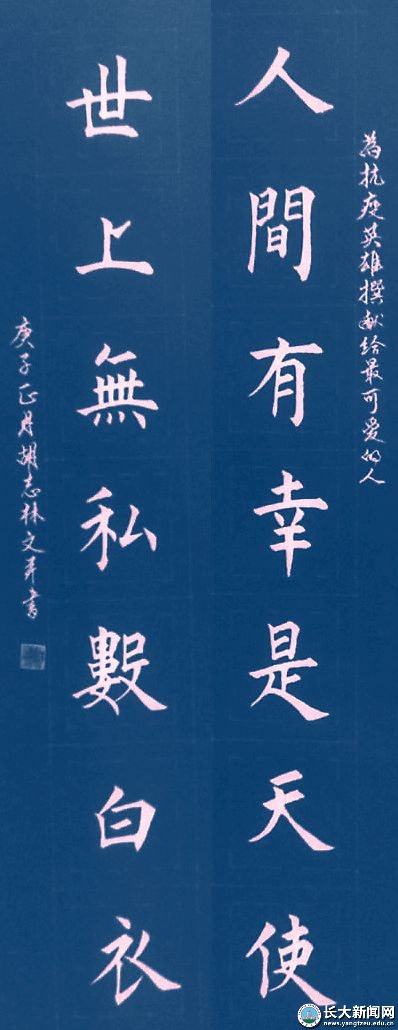 為抗疫英雄撰献给最可爱的人
人間有幸是天使
世上無私數白衣
庚子正月胡志林文并書
长大新闻网
news.yangtzeu.edu.cn